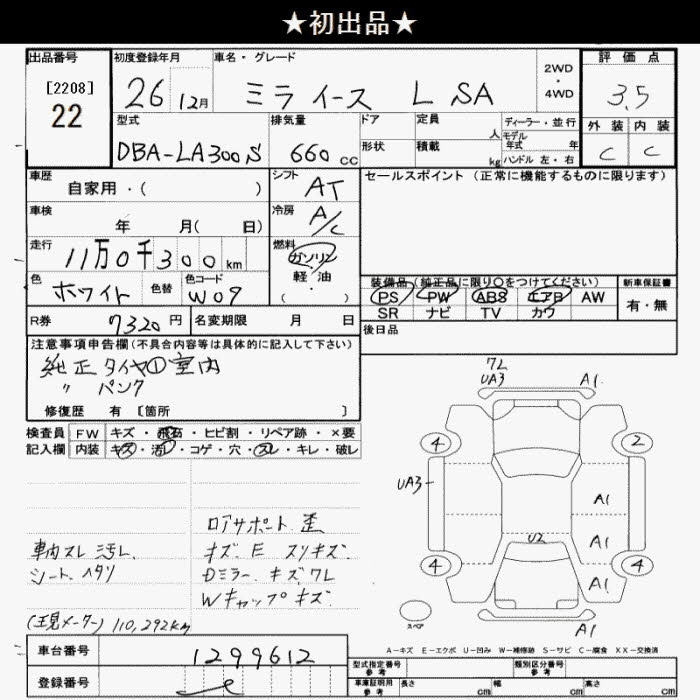 ★初出品★
出品番号 初度登録年月 車名・グレード 2WD・4WD 評価点
[2208] 22 26 12月 ミライース L SA 3.5
型式 排気量 ドア 定員 人 ディーラー・並行 外装 内装
DBA-LA300S 660cc 形状 積載 kg モデル年式 年 ハンドル 左・右 C C
車歴 自家用・( ) シフト AT セールスポイント (正常に機能するものに限ります)
車検 年 月( 日) 冷房 A/C
走行 11万0千300km 燃料 ガソリン・軽・油 ( )
色 ホワイト 色替 色コード W09
装備品 (純正品に限り○をつけてください) 新車保証書
PS PW ABS エアB AW 有・無
SR ナビ TV カワ
R券 7320円 名変期限 月 日 後日品
注意事項申告欄(不具合内容等は具体的に記入して下さい)
純正タイヤ①室内
〃 パンク
修復歴 有 [箇所 ]
検査員 FW キズ・飛石・ヒビ割・リペア跡・×要
記入欄 内装 キズ・汚レ・コゲ・穴・スレ・キレ・破レ
ワレ
UA3 A1
4 2
UA3
A1
U2 A1
4 A1 4
スペア A1
ロアサポート歪
車内スレ汚レ キズ E スリキズ
シートヘタリ Dミラーキズワレ
Wキャップキズ
(現メーター) 110,292km
A−キズ E−エクボ U−凹み W−補修跡 S−サビ C−腐食 XX−交換済
車台番号 1299612
登録番号
型式指定番号 参考 類別区分番号 参考
車庫証明用 参考 長さ cm 幅 cm 高さ cm